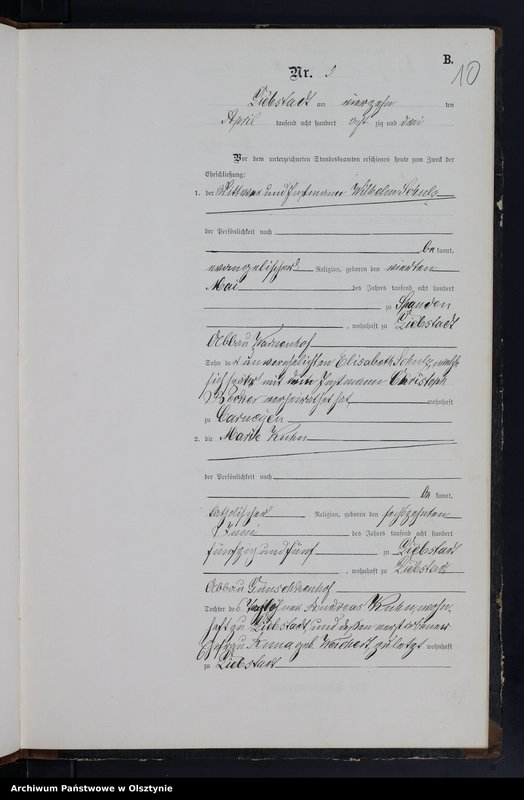 B.
10
Nr. 5
Liebstadt am vierzehn ten
April tausend acht hundert acht zig und drei
Vor dem unterzeichneten Standesbeamten erschienen heute zum Zweck der
Eheschließung:
1. der Wittwer und Instmann Wilhelm Schulz
der Persönlichkeit nach
be kannt,
evangelischer Religion, geboren den vierten
Mai des Jahres tausend acht hundert
zu Spanden
, wohnhaft zu Liebstadt
Abbau
Sohn der unverehelichten Elisabeth Schulz, welche
sich später mit dem Instmann Christoph
verheirathet hat wohnhaft
zu Carneyen
2. die Marie Kuhn
der Persönlichkeit nach
be kannt,
katholischer Religion, geboren den sechszehnten
Juni des Jahres tausend acht hundert
fünfzig und fünf zu Liebstadt
, wohnhaft zu Liebstadt
Abbau
Tochter des Andreas Kuhn, wohn-
haft zu Liebstadt, und dessen verstorbener
Ehefrau Anna geb. zuletzt wohnhaft
zu Liebstadt
Archiwum Państwowe w Olsztynie